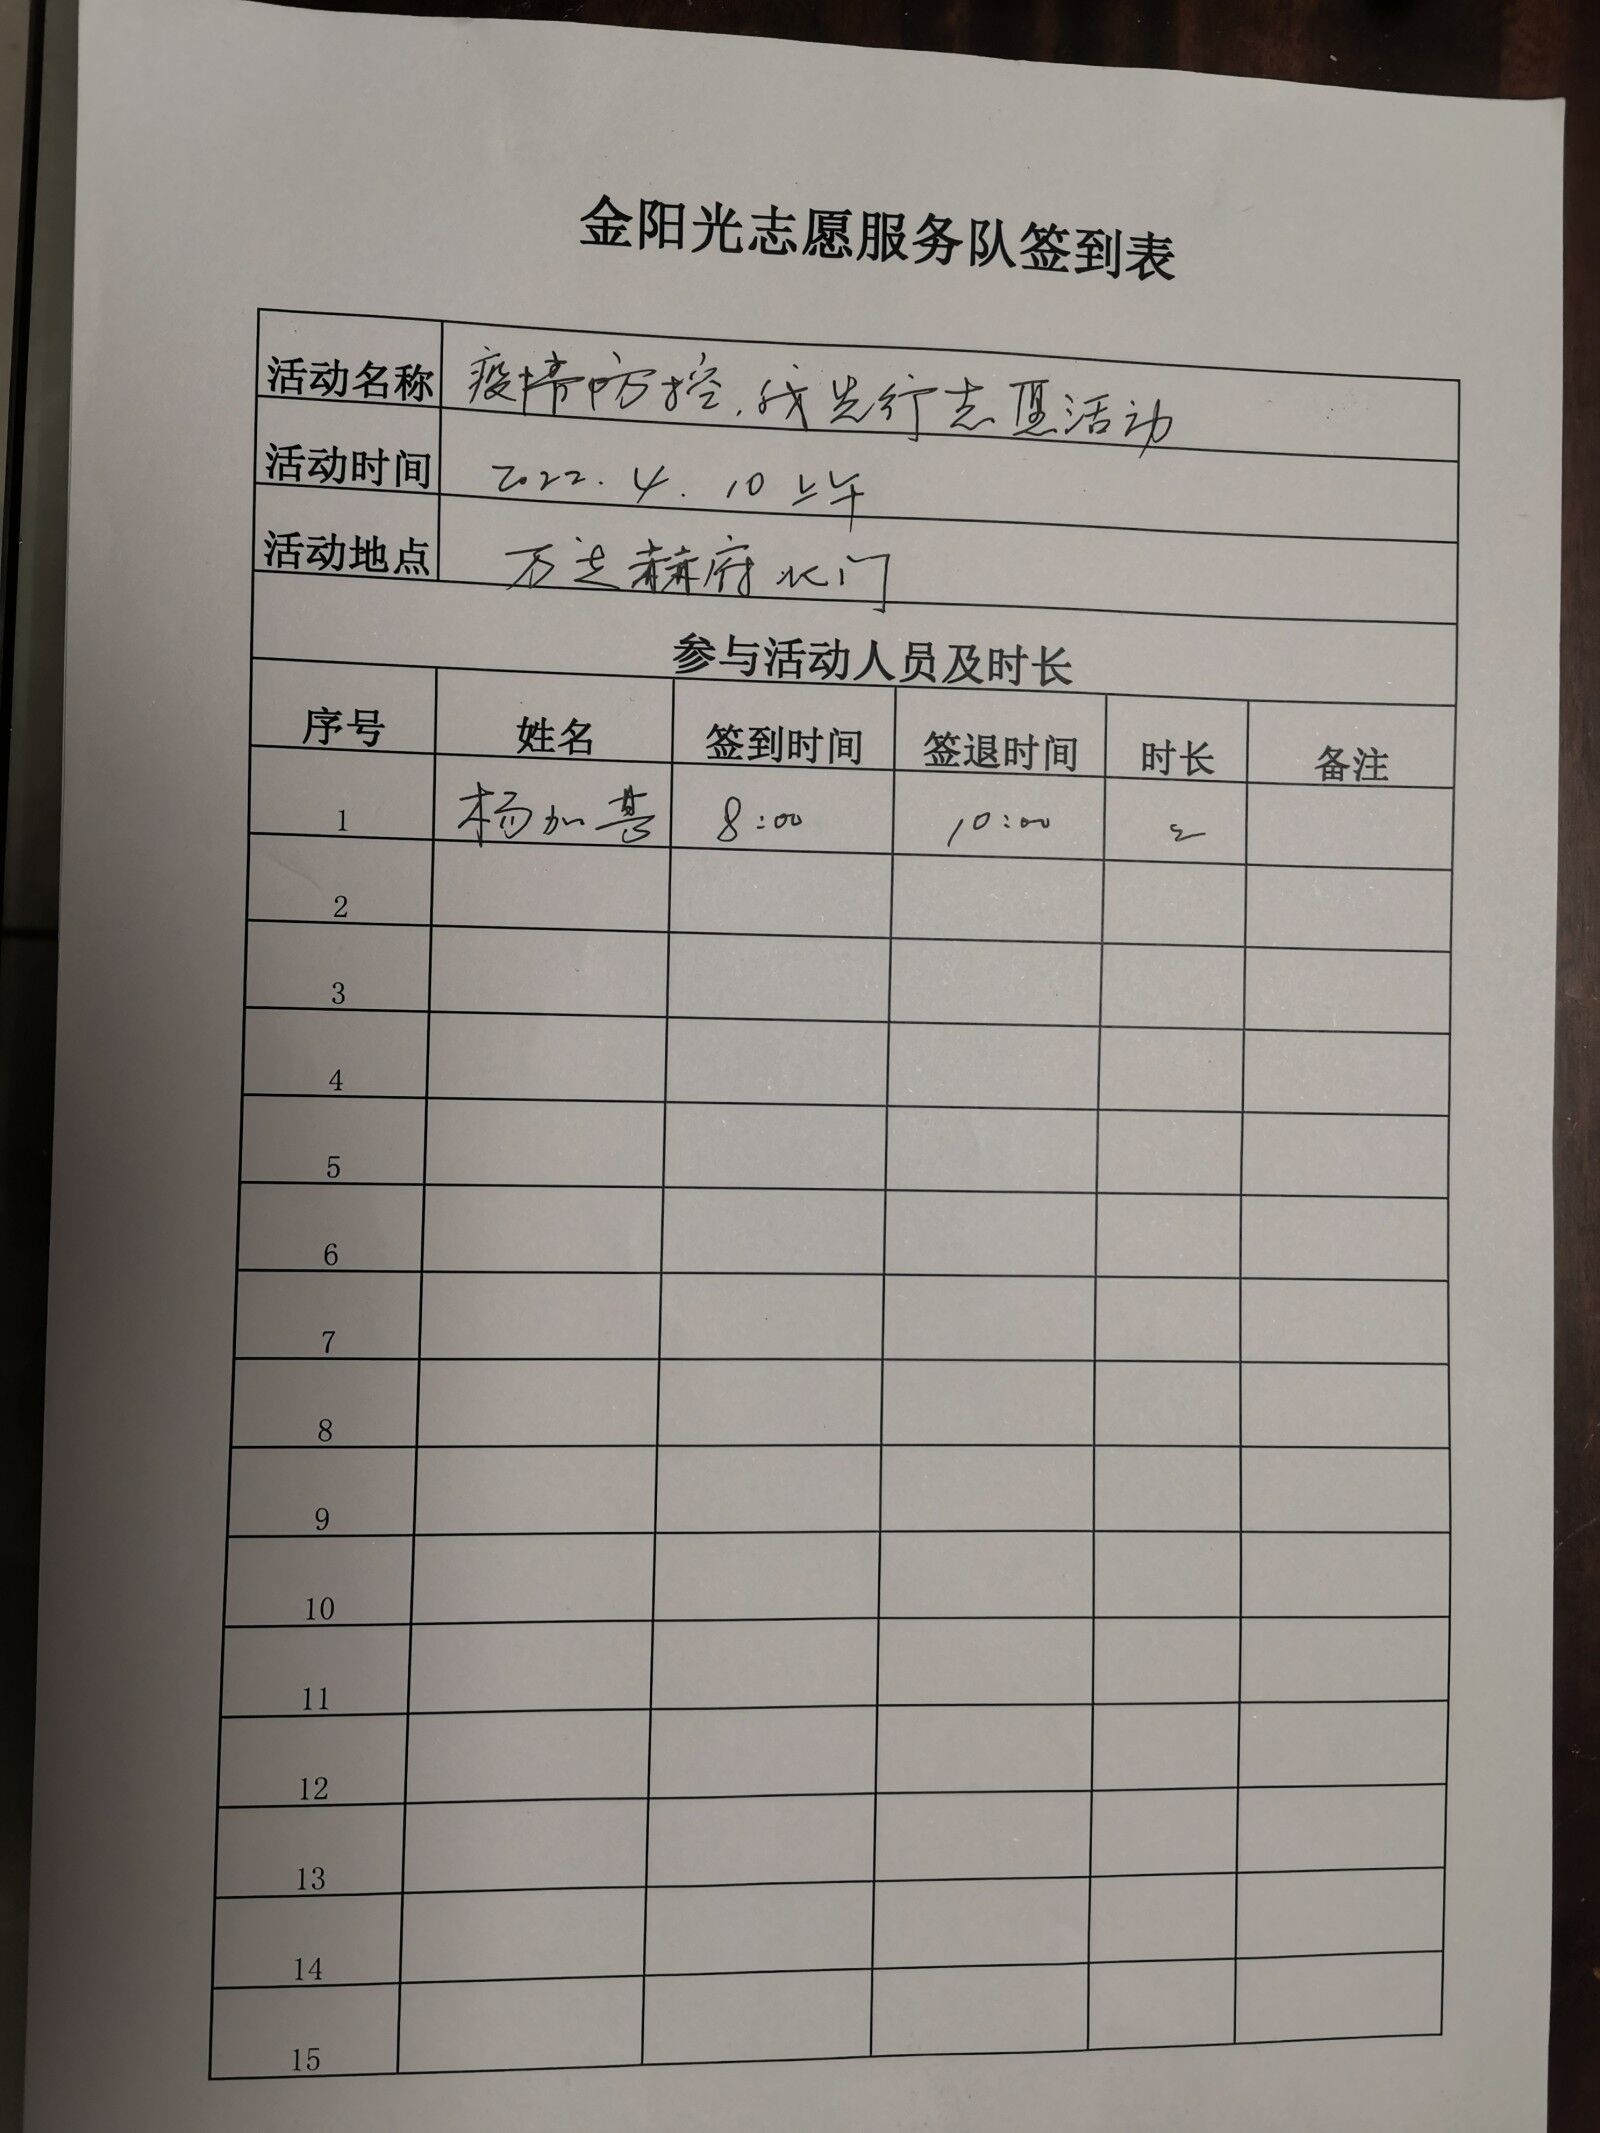 金阳光志愿服务队签到表
活动名称 疫情防控,我先行志愿活动
活动时间 2022.4.10上午
活动地点 万达赫府北门
参与活动人员及时长
序号 姓名 签到时间 签退时间 时长 备注
1 杨加 8:00 10:00 2
2
3
4
5
6
7
8
9
10
11
12
13
14
15